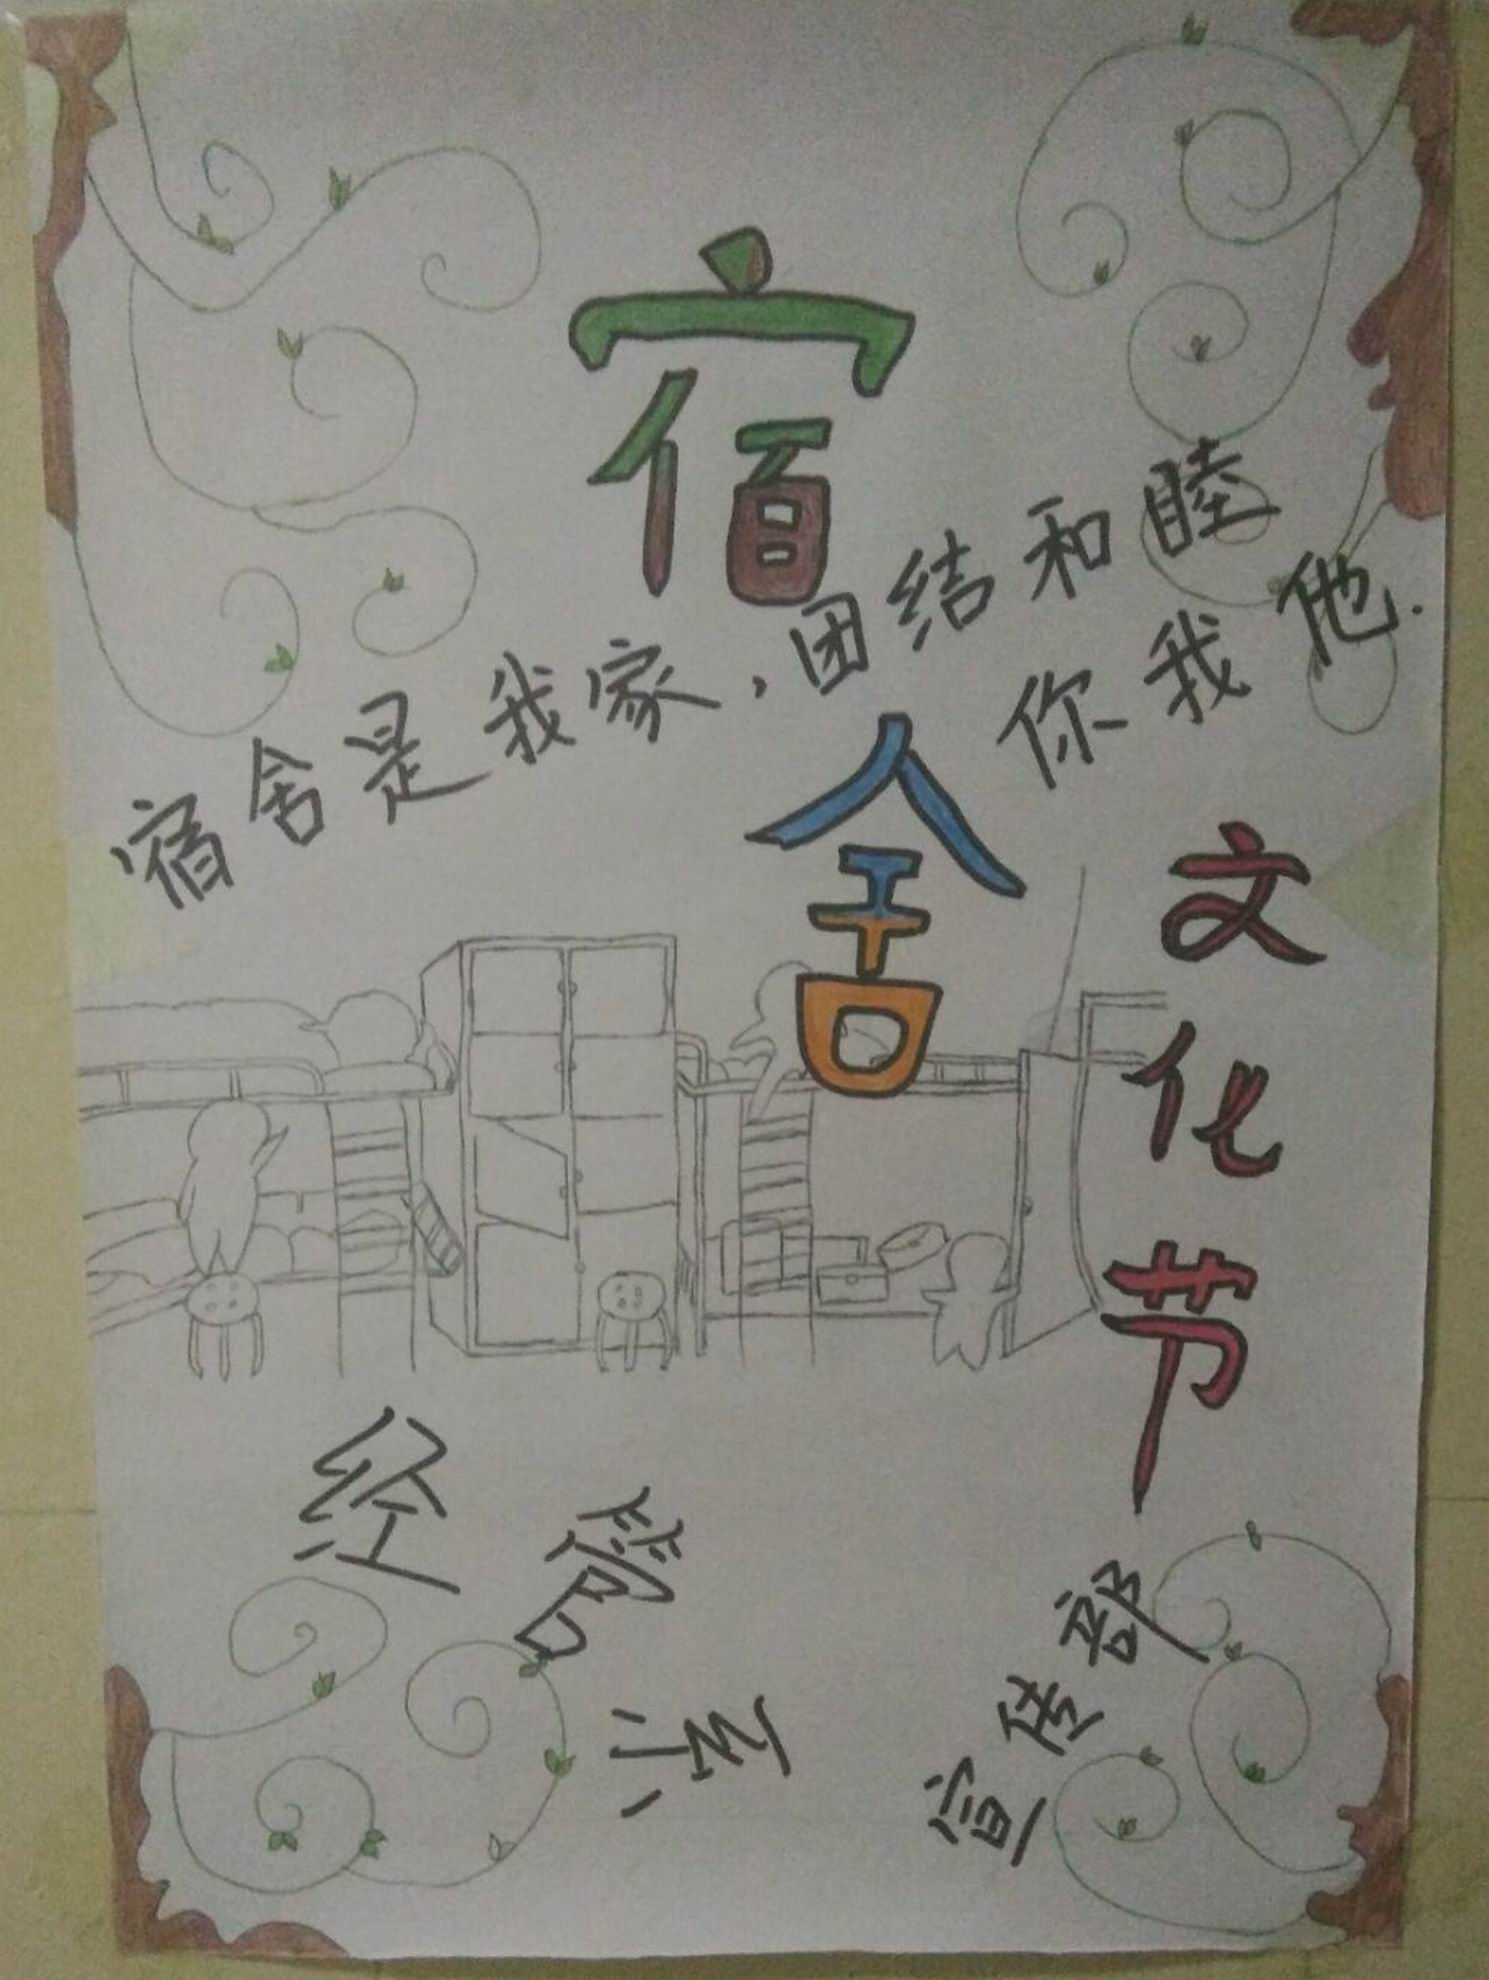 宿舍
宿舍是我家,团结和睦
你我他.
文化节
经管
宣传部